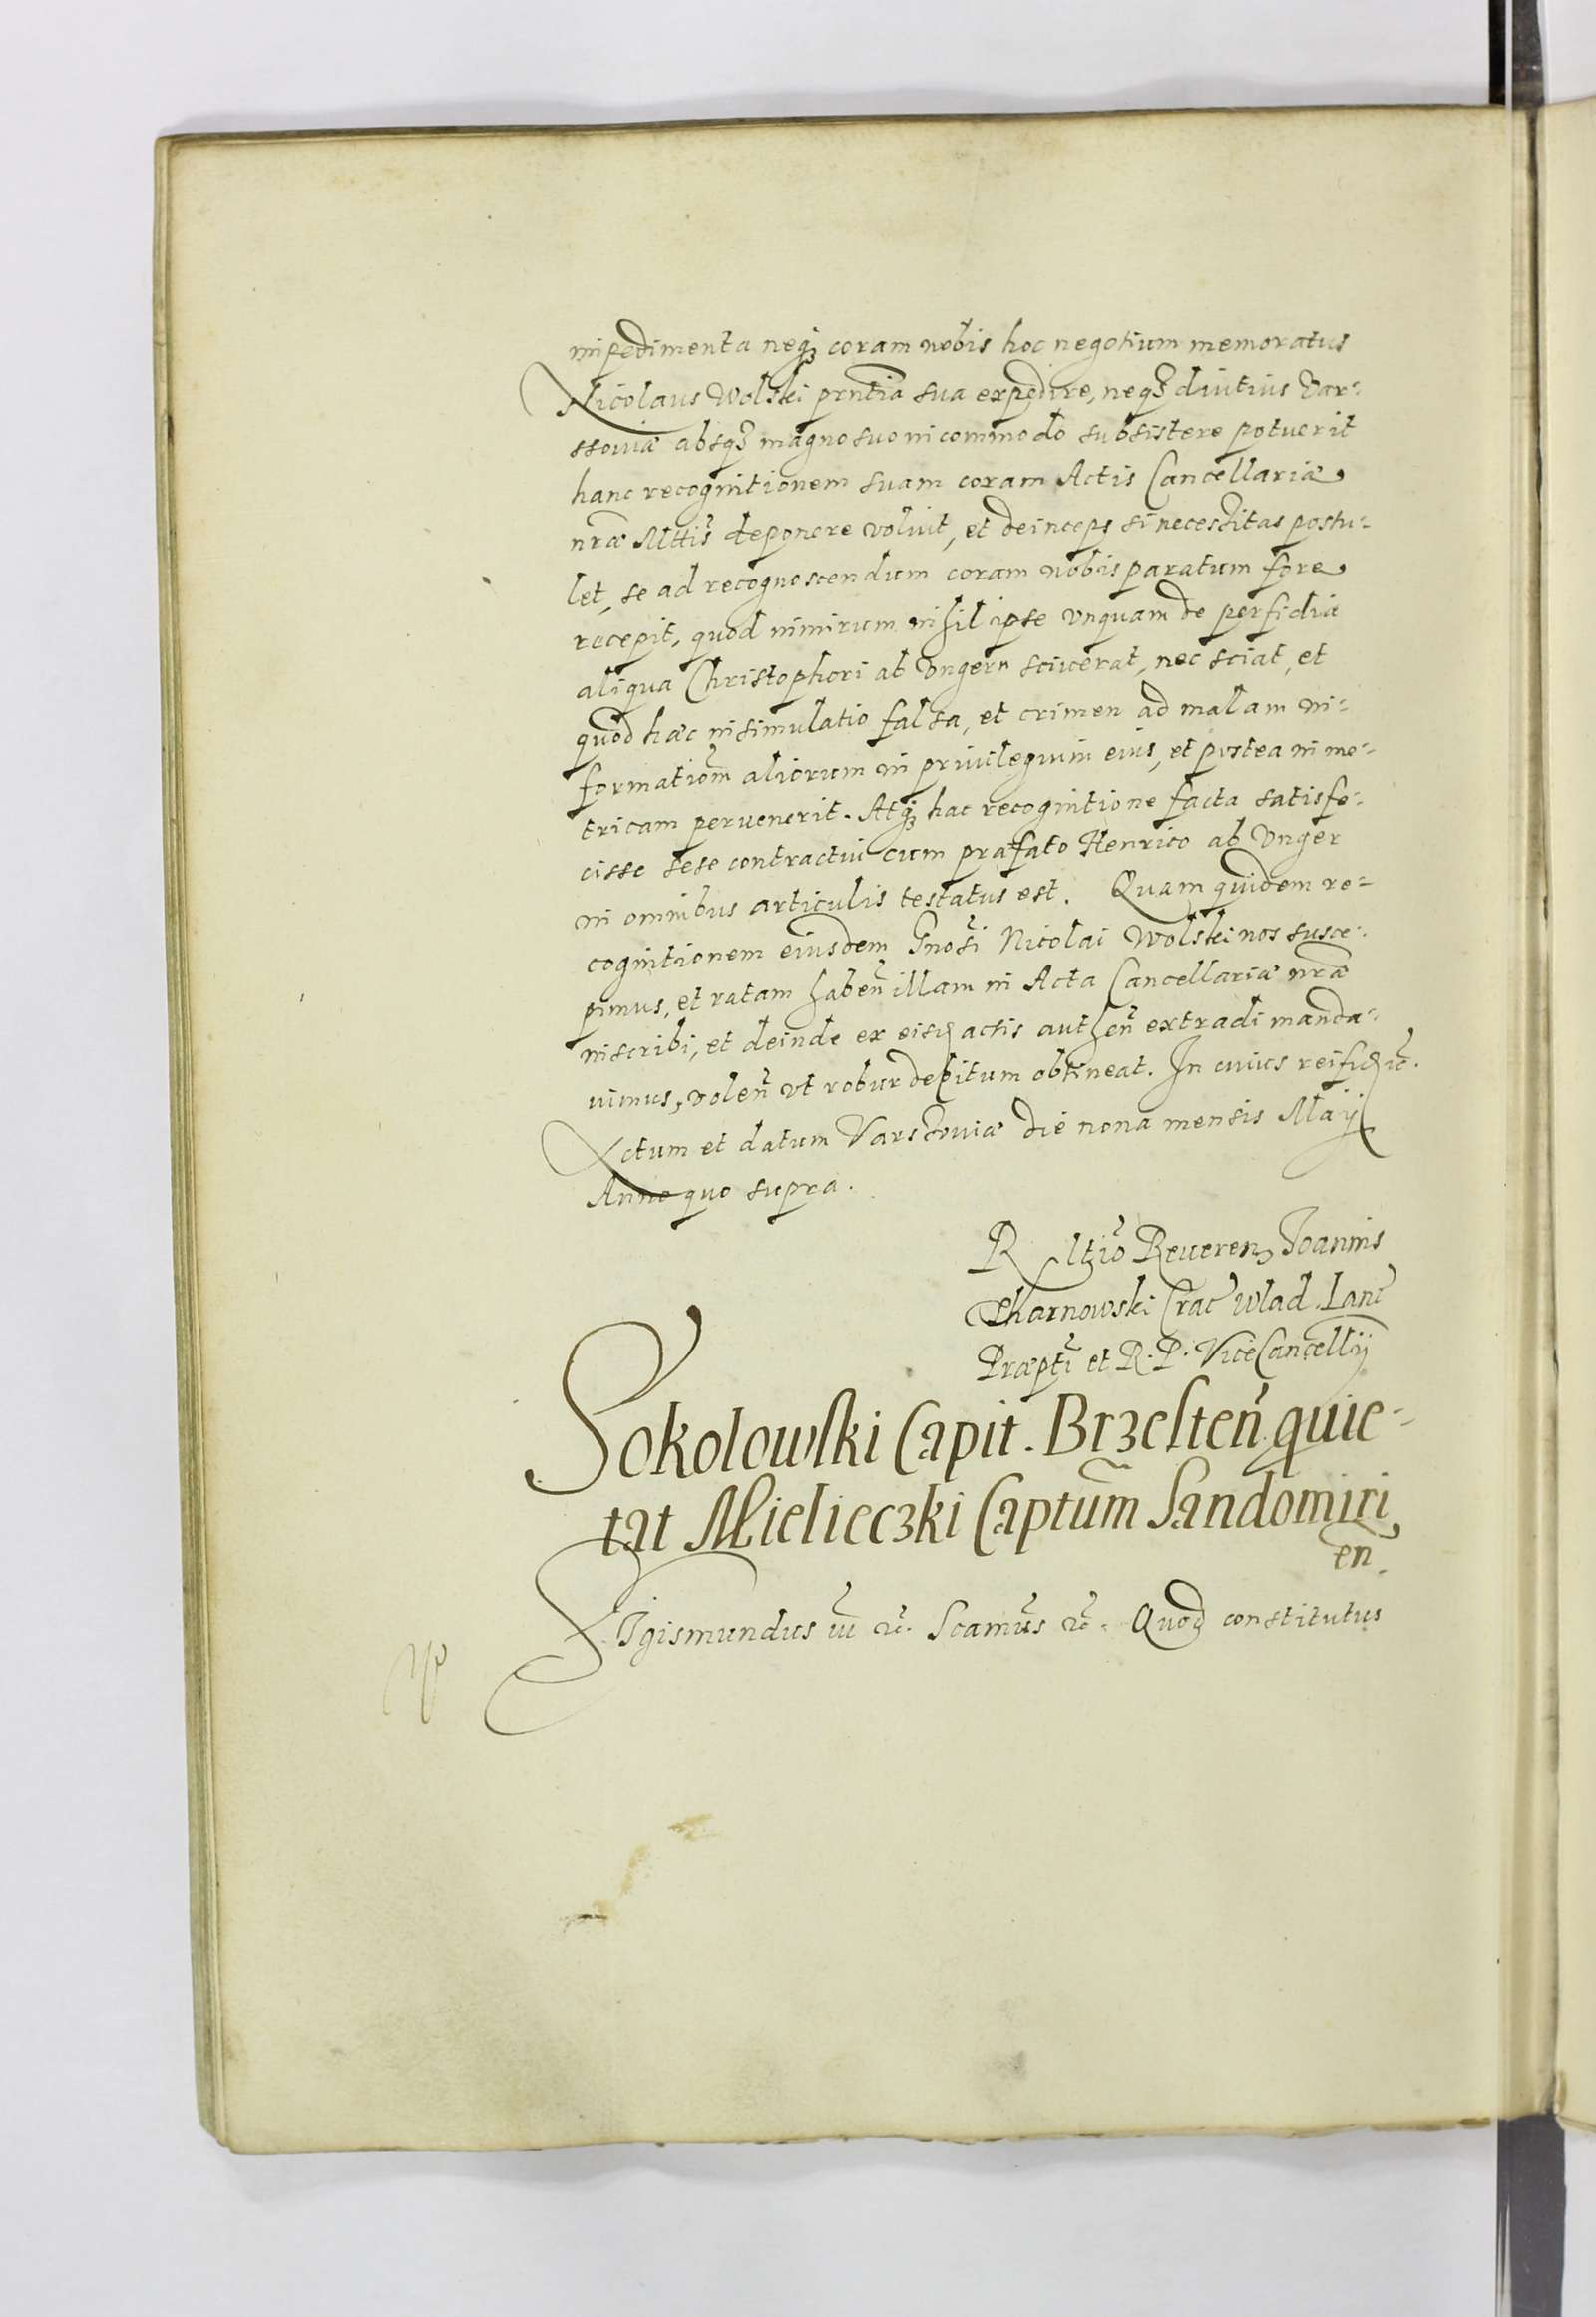 impedimenta neq3 coram nobis hoc negotium memoratus
Nicolaus Wolski pñtia sua expedire, neq3 diutius Var-
ssoviæ absq3 magno suo incommodo subsistere potuerit
hanc recognitionem suam coram Actis Cancellariæ
nr̃æ Mttis deponere voluit, et deinceps si necessitas postu-
let, se ad recognoscendum coram nobis paratum fore
recepit, quod nimirum nihil ipse unquam de perfidia
aliqua Christophori ab Ungern sciverat, nec sciat, et
quod hæc insimulatio falsa, et crimen ad malam in-
formationẽ aliorum in privilegium eius, et postea in me-
tricam pervenerit. Atq3 hac recognitione facta satisfe-
cisse sese contractui cum præfato Henrico ab Unger
in omnibus articulis testatus est. Quam quidem re-
cognitionem eiusdem Gnosi Nicolai Wolski nos susce-
pimus, et ratam habeñ illam in Acta Cancellariæ nr̃æ
inscribi, et deinde ex eisd actis autheñ extradi manda-
vimus, voleñ ut robur debitum obtineat. In cuius rei fid etc.
Actum et datum Varssoviæ die nona mensis Maij
Anno quo supra.
R ltio Reveren Joannis
Tharnowski Crac Wlad. Lanc
Præpti et R. P. ViceCancellij
Sokolowski Capit. Brzesteñ quie-
tat Mielieczki Captum Sandomiri
eñ.
Sigismundus iii etc. Scamus etc. Quod constitutus